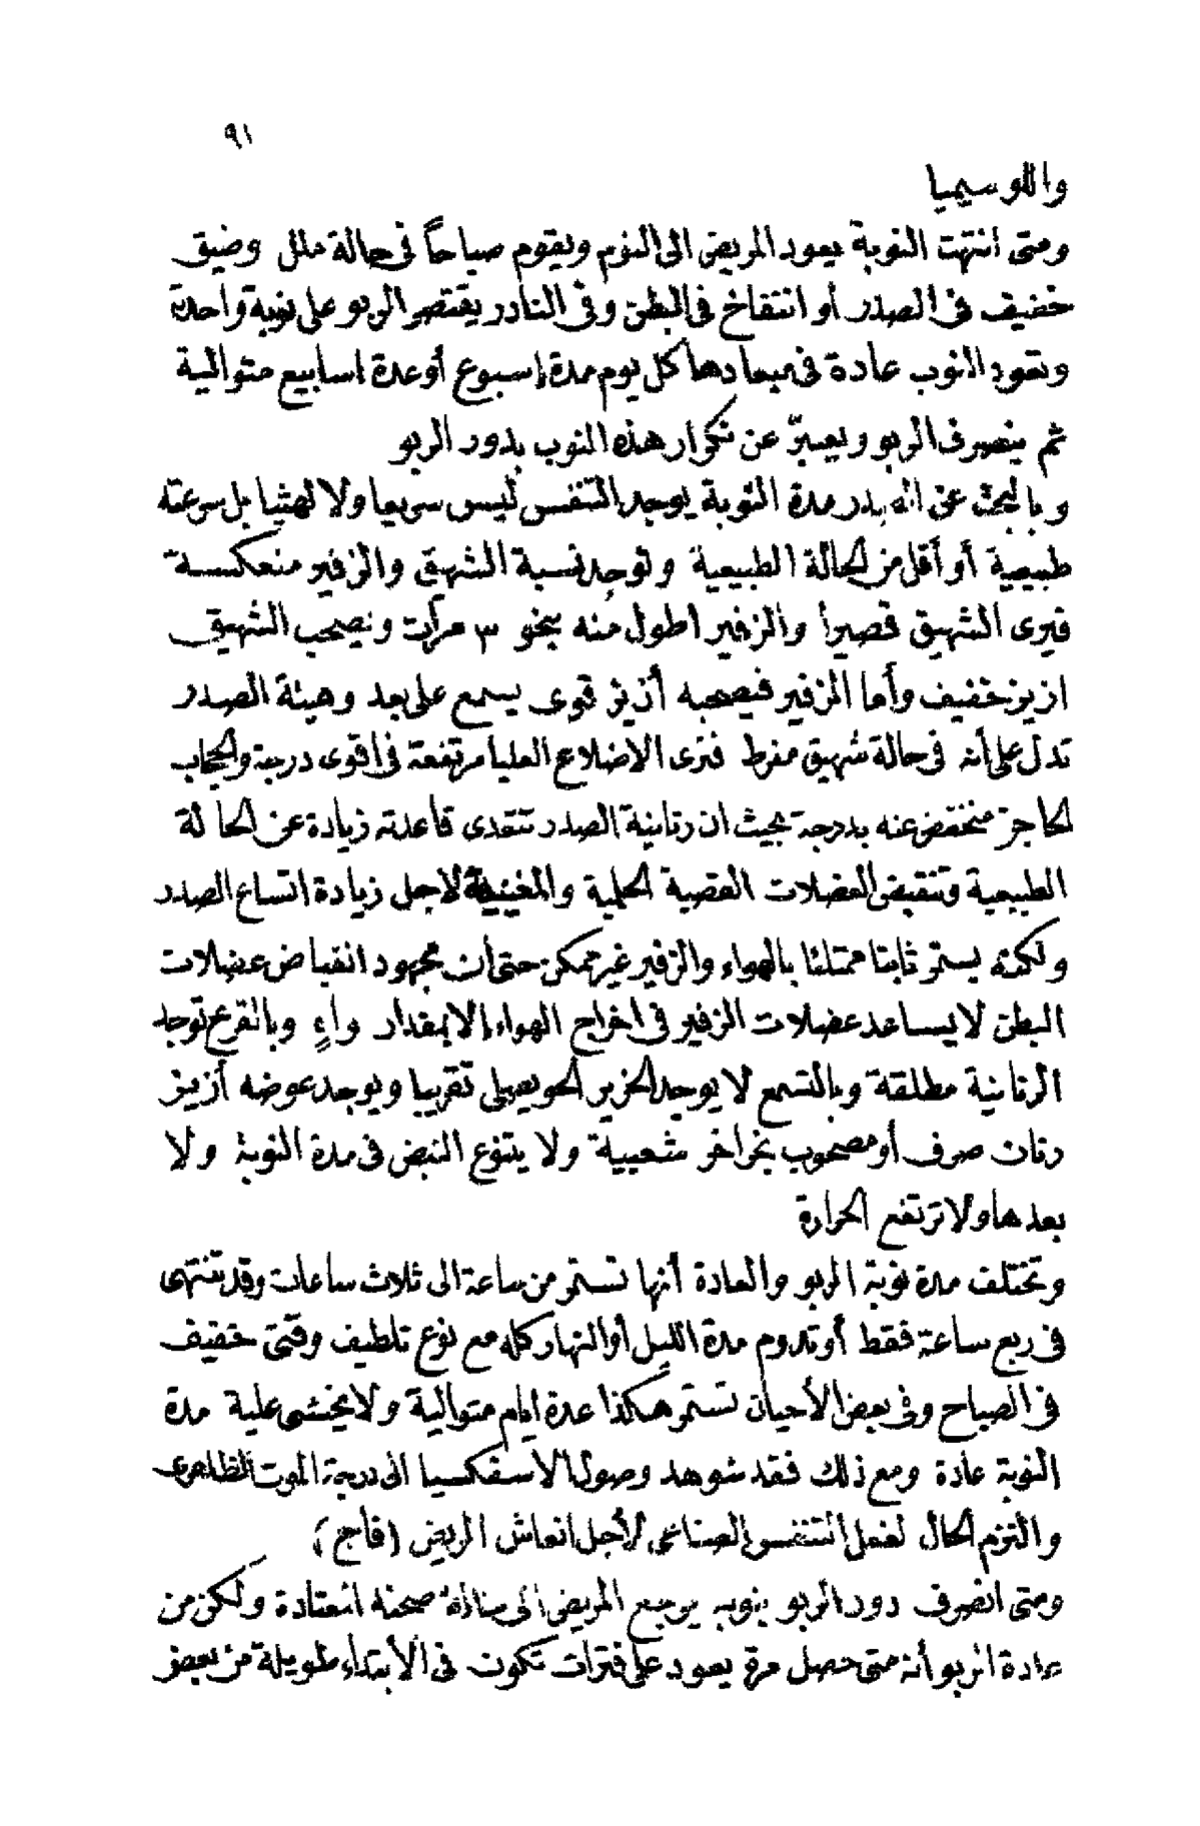 ٩١
واللوسيميا
ومتى انتهت النوبة يعود المريض الى النوم ويقوم صباحاً فى حالة ملل وضيق
خفيف فى الصدر أو انتفاخ فى البطن وفى النادر يقتصر الربو على نوبة واحدة
وتعود النوب عادة فى ميعادها كل يوم مدة إسبوع أو عدة اسابيع متوالية
ثم ينصرف الربو ويعبرّ عن تكرار هذه النوب بدور الربو
وبالبحث عن الصدر مدة النوبة يوجد التنفس ليس سريعا ولا لهثيا بل سرعته
طبيعية أو أقل من الحالة الطبيعية وتوجد نسبة الشهيق والزفير منعكسة
فيرى الشهيق قصيرا والزفير اطول منه بنحو ٣ مرات ويصحب الشهيق
ازيز خفيف وأما الزفير فيصحبه أزيز قوى يسمع على بعد وهيئة الصدر
تدل على أنه فى حالة شهيق مفرط فترى الاضلاع العليا مرتفعة فى اقوى درجة والحجاب
الحاجز منخفض عنه بدرجة بحيث ان رنانية الصدر تتعدى قاعدته زيادة عن الحالة
الطبيعية وتنقبض العضلات القصية الحلمية والمغينية لاجل زيادة اتساع الصدر
ولكنه يستمر ثابتا ممتلئا بالهواء والزفير غير ممكن حتى أن مجهود انقباض عضلات
البطن لا يساعد عضلات الزفير فى اخراج الهواء إلا بمقدار واءٍ وبالقرع توجد
الرنانية مطلقة وبالتسمع لا يوجد الخرير الحويصلى تقريبا ويوجد عوضه أزيز
رنان صرف أو مصحوب بخراخر شعبية ولا يتنوع النبض فى مدة النوبة ولا
بعدها ولا ترتفع الحرارة
وتختلف مدة نوبة الربو والعادة أنها تستمر من ساعة الى ثلاث ساعات وقد تنتهى
فى ربع ساعة فقط أو تدوم مدة الليل أو النهار كله مع نوع تلطيف وقتى خفيف
فى الصباح وفى بعض الأحيان تستمر هكذا عدة ايام متوالية ولا يخشى علية مدة
النوبة عادة ومع ذلك فقد شوهد وصول الاسفكسيا الى درجة الموت الظاهرى
والتزم الحال لفعل التنفس الصناعى لأجل انعاش المريض (فاجج)
ومتى انصرف دور الربو بنوبه يرجع المريض الى صحته المعتادة ولكن من
عادة الربو أنه متى حصل مرة يعود على فترات تكون فى الأبتداء طويلة من بعض